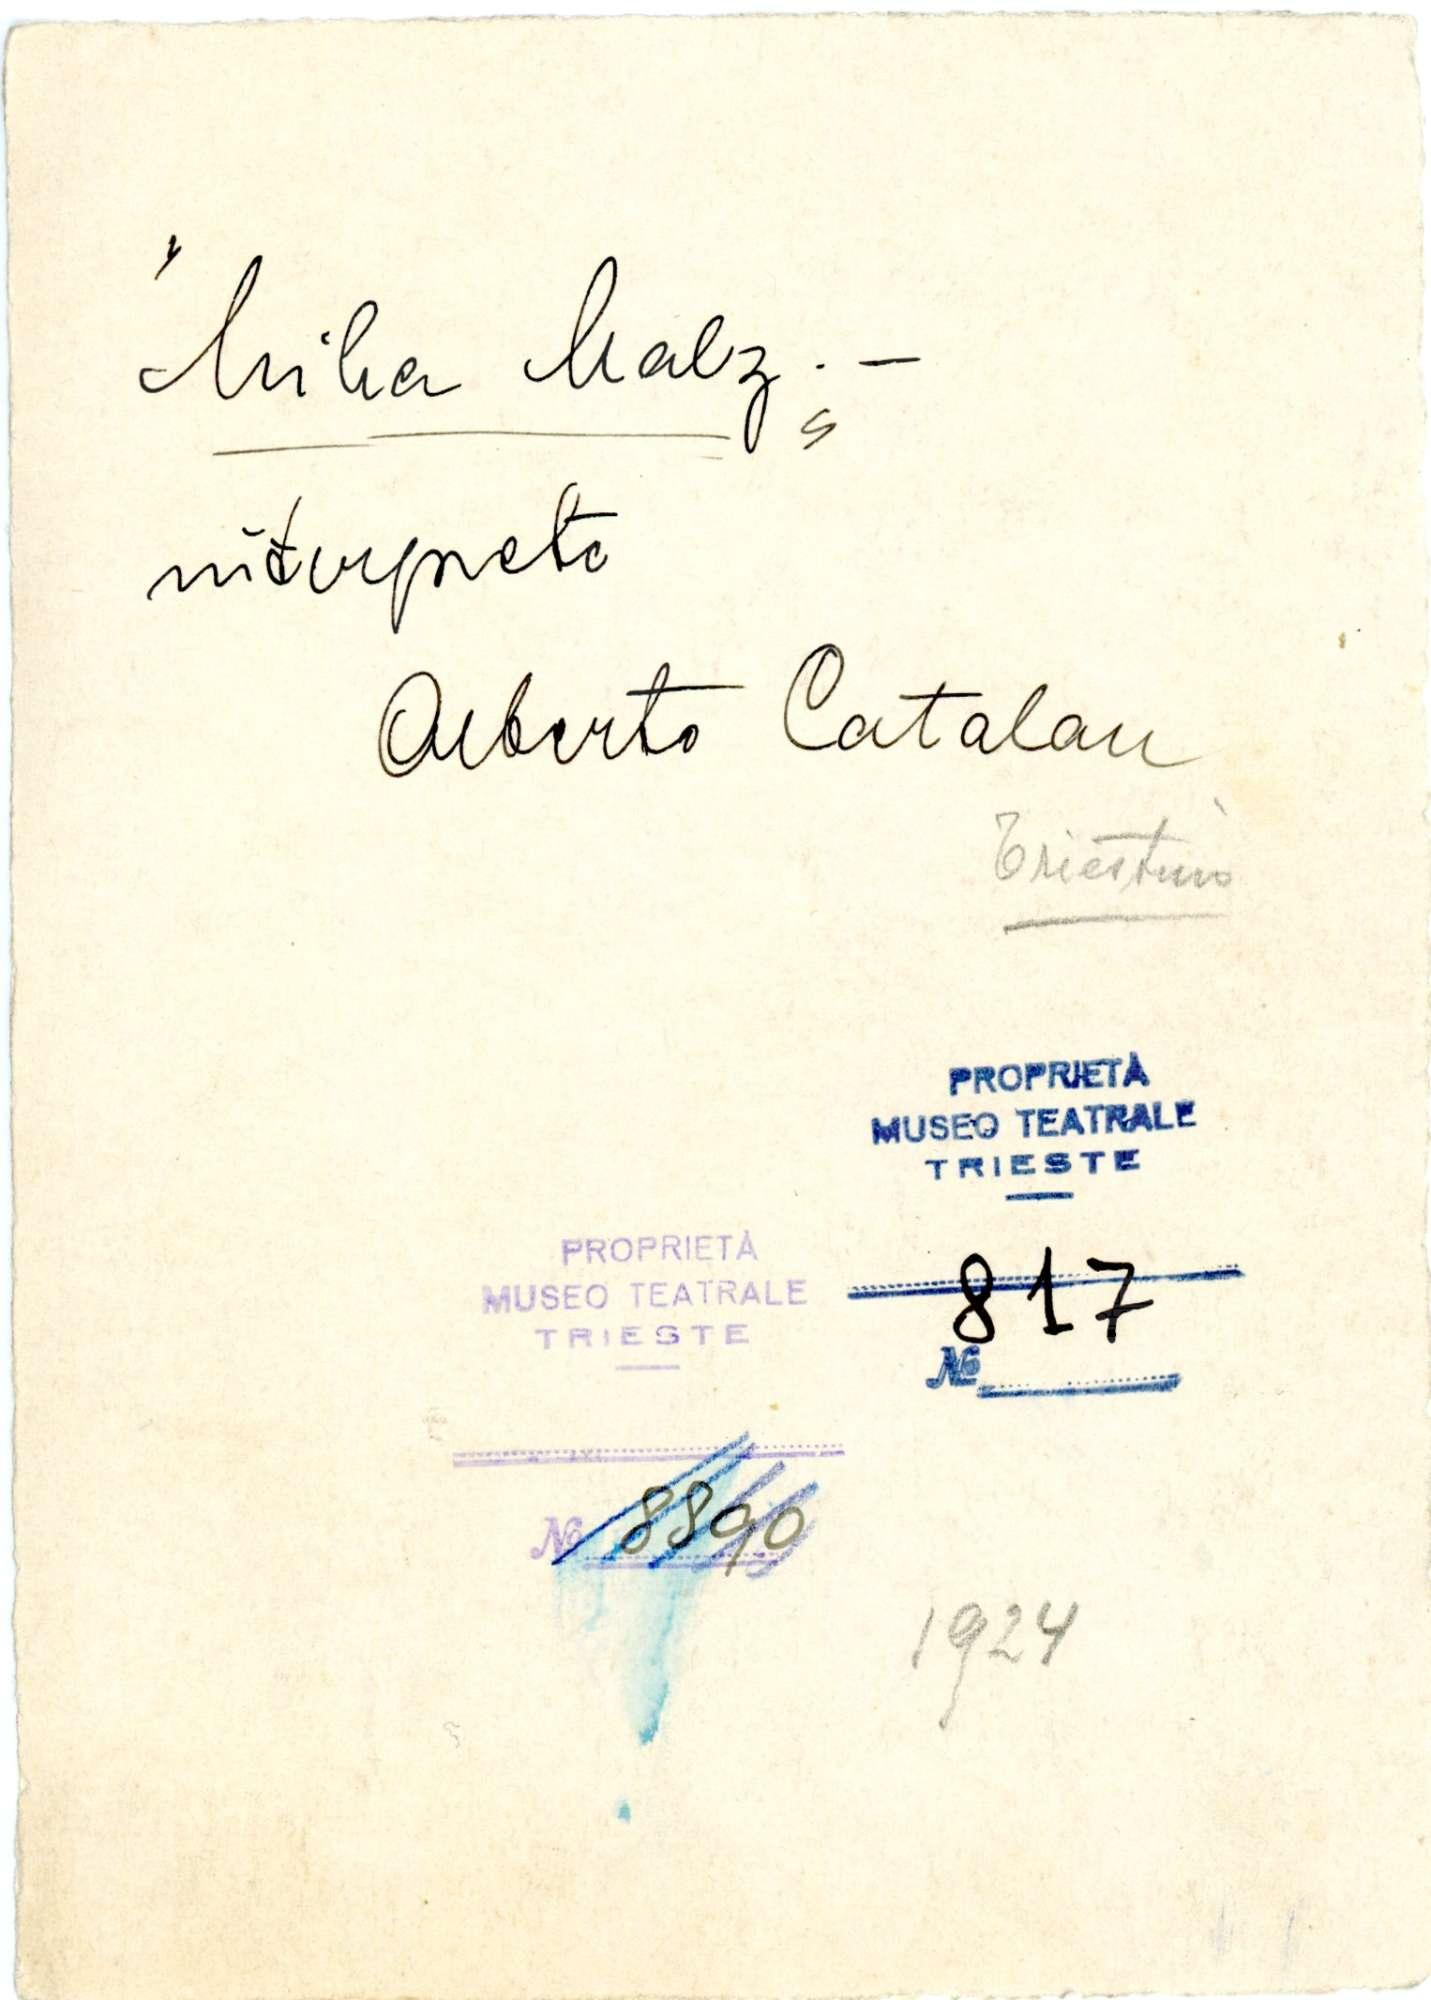 "Mika Malz . –
interprete
Alberto Catalan
Triestino
PROPRIETÀ
MUSEO TEATRALE
TRIESTE
817
№
PROPRIETÀ
MUSEO TEATRALE
TRIESTE
№ 8890
1924